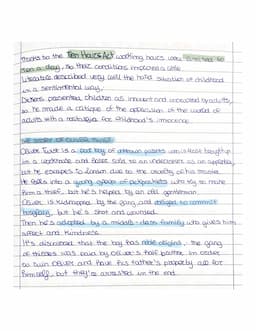 thanks to the Ten Hours Act working hours were limited to
ten a day, so their conditions improved a little.
Literature described very well the hard situation of childhood
in a sentimental way.
Dickens presented children as innocent and uncorrupted by adults,
so he made a critique of the oppression of the world of
adults with a nostalgia for childhood's innocence.
THE STORY OF OLIVER TWIST
Oliver Twist is a poor boy of unknown parents who is brought up
in a workhouse and later sold to an undertaker as an apprentice
but he escapes to London due to the cruelty of his master.
He falls into a young group of pickpockets who try to make
him a thief, but he's helped by an old gentleman.
Oliver is kidnapped by the gang and obliged to commit
burglary, but he's shot and wounded.
Then he's adopted by a middle-class family who gives him
affect and kindness.
It's discovered that the boy has noble origins, the gang
of thieves was paid by Oliver's half brother in order
to ruin Oliver and have his father's property all for
himself, but they're arrested in the end.